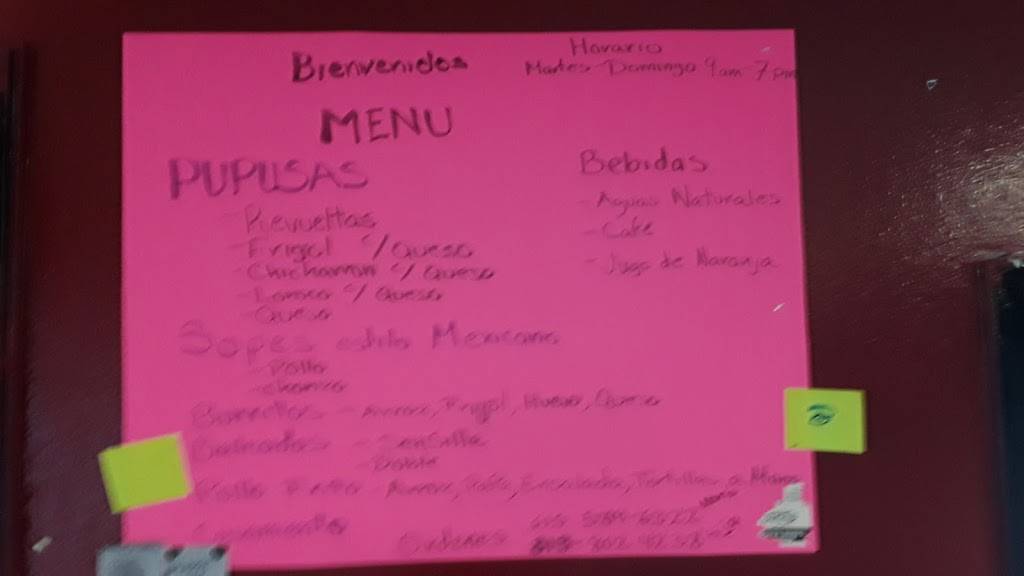 Bienvenidos
Horario
Martes-Domingo 9am-7pm
MENU
PUPUSAS
- Revueltas
- Frigol c/Queso
- Chicharron c/Queso
- c/Queso
- Queso
Bebidas
- Aguas Naturales
- Cake
- Jugo de Naranja
Sopes estilo Mexicano
- Pollo
- Chorizo
Burritos - Arroz, Frigol, Huevo, Queso
- Sencilla
- Doble
Pollo - Arroz, Ensalada, Tortillas a Mano
Ordenes